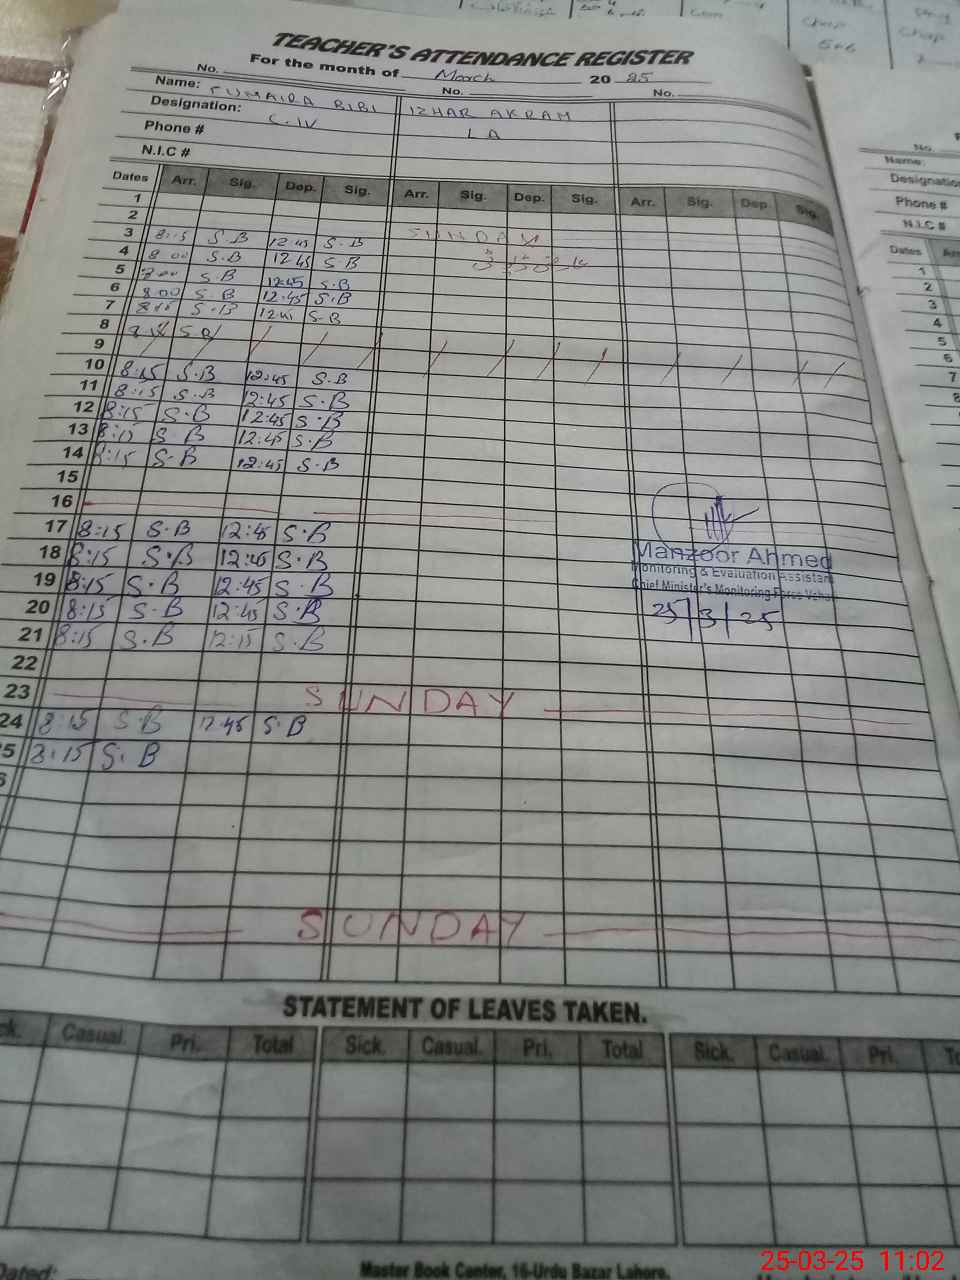 TEACHER'S ATTENDANCE REGISTER
For the month of March 20 25
No. No. No.
Name: SUMAIRA BIBI IZHAR AKRAM
Designation: C.IV LA
Phone #
N.I.C #
Dates Arr. Sig. Dep. Sig. Arr. Sig. Dep. Sig. Arr. Sig. Dep. Sig.
1
2 SUNDAY
3 8:15 S.B 12:45 S.B
4 8:00 S.B 12:45 S.B
5 8:00 S.B 12:45 S.B
6 8:00 S.B 12:45 S.B
7 S.B S.B
8
9
10 8:15 S.B 12:45 S.B
11 8:15 S.B 12:45 S.B
12 8:15 S.B 12:45 S.B
13 8:15 S.B 12:45 S.B
14 8:15 S.B 12:45 S.B
15
16
17 8:15 S.B 12:45 S.B
18 8:15 S.B 12:45 S.B
19 8:15 S.B 12:45 S.B
20 8:15 S.B 12:45 S.B
21 8:15 S.B 12:15 S.B
22
23 SUNDAY
24 8:15 S.B 12:45 S.B
5 8:15 S.B
SUNDAY
Manzoor Ahmed
Monitoring & Evaluation Assistant
Chief Minister's Monitoring Force
25/3/25
STATEMENT OF LEAVES TAKEN.
Casual. Pri. Total Sick. Casual. Pri. Total Sick. Casual. Pri.
Dated:
Master Book Center, 16-Urdu Bazar Lahore.
No.
Name:
Designation
Phone #
N.I.C #
Dates
1
2
3
4
5
6
7
8
25-03-25 11:02